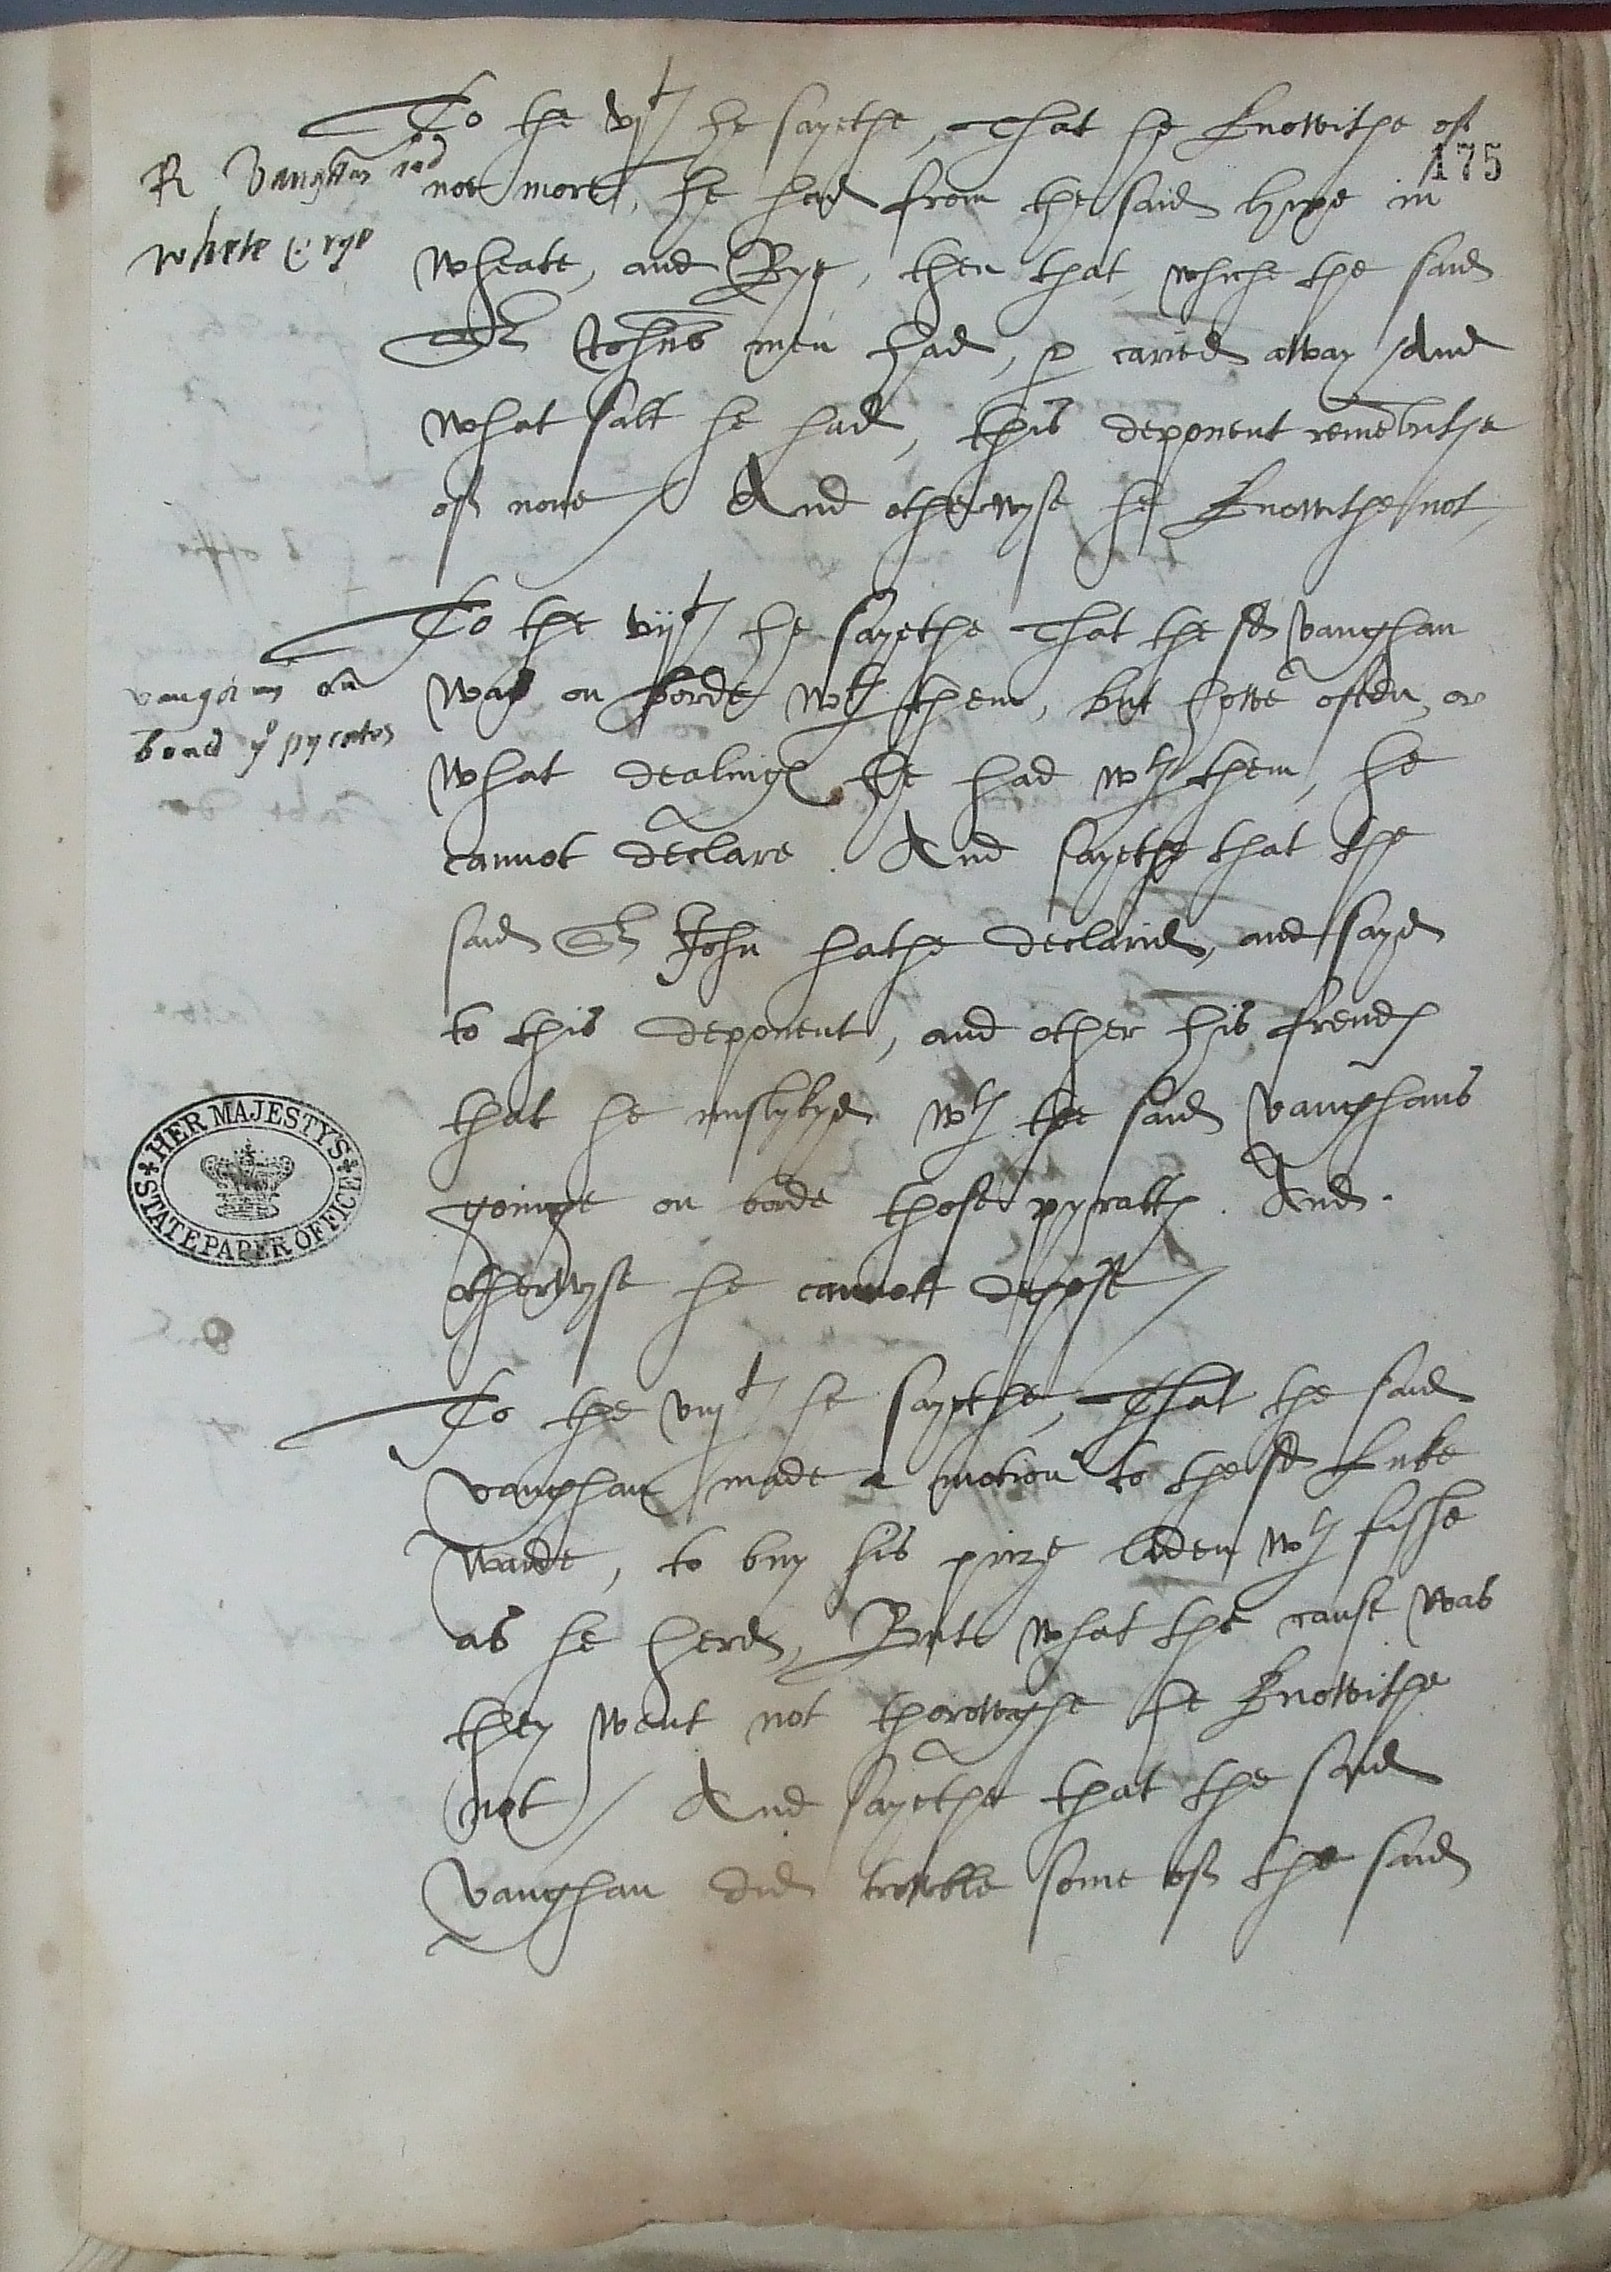 To the vjth he sayethe, That he knowithe off
175
R Vaughan had
whete & rye
not more, he had from the said hype in
wheate, and Rye, then that, whiche the said
Sr Johns men had, & caried away / And
what salt he had, this deponent remēbrithe
off none / And otherwyse he knowithe not,
To the vijth he sayethe That the sd vaughan
vaughan on
bord ye pyrates
was on borde wth them, but howe often, or
what dealing he had wth them, he
cannot declare. And sayethe that the
said Sr John hathe declarid, and sayd
to this deponent, and other his frends
that he myslykyd wth the said vaughans
goinge on borde those pyratts. And
otherwyse he cannott depose /
HER MAJESTY'S
STATE PAPER OFFICE
To the viijth he sayethe, That the said
vaughan made a motion to the sd Luke
warde, to buy his prize laden wth fisshe
as he herd, But what the cause was
they went not thorowghe he knowithe
not / And sayethe that the said
Vaughan did trouble some off the said